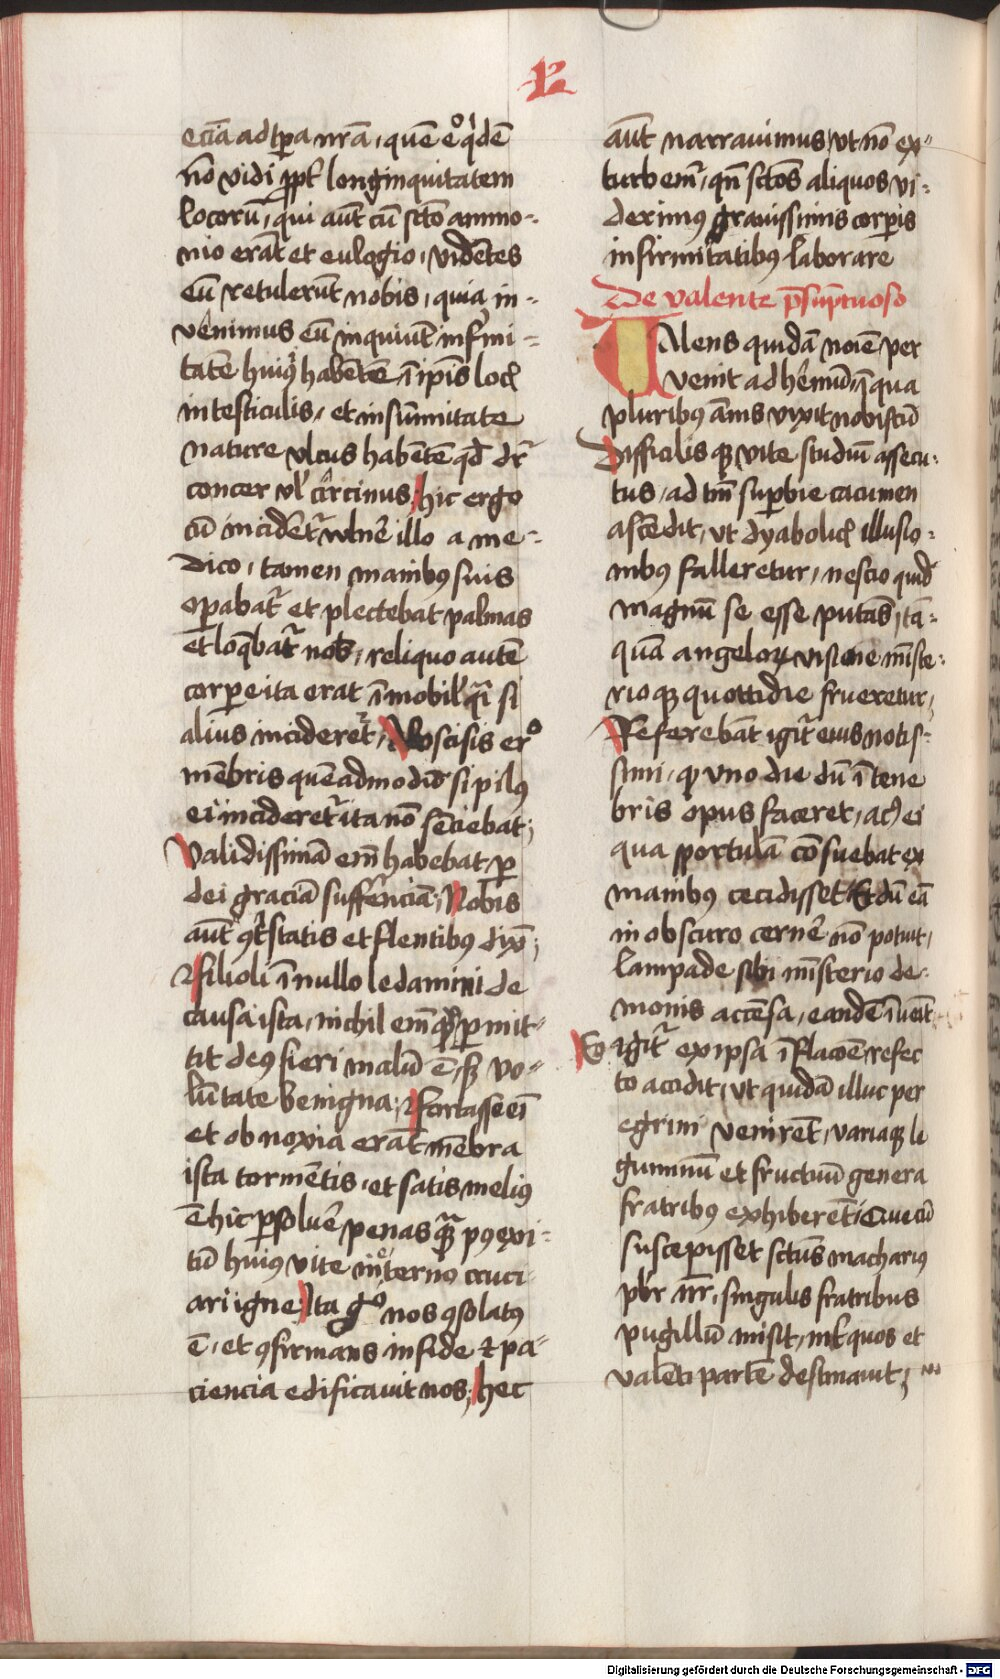 eciā ad tꝑa nr̄a, quē eͦ qͥdē
nō vidi ꝓpt̄ longinquitatem
locorū, qui aūt cū sctō ammo-
nio erāt et eulogio, vidētes
eū retulerūt nobis, quia in-
venimus eū inquiūt infirmi-
tatē huiꝰ habētē, ī ip̄is locꝭ
in testiculis, et in sūmitate
nature vlcus habētē qd̄ dr̄
concer vl̓ circinus, hic ergo
cū incider̄et vulner̄e illo a me-
dico, tamen manibꝰ suis
oꝑabat᷑ et plectebat palmas
Et loq̄bat᷑ nob̄, reliquo autē
corpere ita erat īmobil̓ qͣi si
alius incideret᷑, Abscisis erͦ
mēbris quēadmodū si pilꝰ
ei incideret᷑ ita nō sēciebat;
Validissimā em̄ habebat ꝑ
dei graciā suffēnciā, Nobis
aūt ꝯt̓statis et flentibꝰ dix̄;
filioli ī nullo ledamini de
causa ista, nichil em̄ qd̄ ꝑmit-
tit deꝰ fieri malū ē, sꝫ vo-
lūtate benigna, fortasse ei
et obnoxia erāt mēbra
ista tormētis, et satis meliꝰ
ē hic ꝑsoluer̄e penas qͣꝫ pꝰ exi-
tū huiꝰ vite in eͦterno cruci
ari igne, Ita gͦ nos ꝯsolatꝰ
ē, et ꝯfirmans in fide ⁊ pa-
ciencia edificauit nos, hec
aūt narrauimus, vt nō ex-
turbem᷑, qn̄ sctōs aliquos vi-
deximꝰ grauissimis corꝑis
infirmitatibꝰ laborare
De valente p̄sūptuoso
Valens quidā noīe per
venit ad hēmū, ī qua
pluribꝰ ānis vixit nobiscū
difficilis qꝫ vite studiū assecu-
tus, ad tm̄ suꝑbie cacumen
ascēdit, vt dyabolicꝭ illusio-
nibꝰ falleretur, nescio quid
magnū se esse putās, tā-
quā angeloꝝ visione ministe-
rio qꝫ quottidie frueretur,
Referebāt igit᷑ eius notis-
simi, qꝙ vno die dū ī tene
bris opus faceret, acꝰ ei
qua sportulā cōsuebat ex
manibꝰ cecidisset Et dū eā
in obscuro cerner̄e nō potuit,
lampade sibi mīsterio de-
monis accēsa, eandē īuenit
Ex igit᷑ ex ipsa īflacōe refec
to accidit, vt quidā illuc per
egrini venirēt, variaqꝫ le
guminū et fructuū genera
fratribꝰ exhiberēt, Que cū
suscepisset sctūs machariꝰ
pb̄r nr̄, singulis fratribus
pugillū misit, int̓ quos et
valēti partē destinauit,